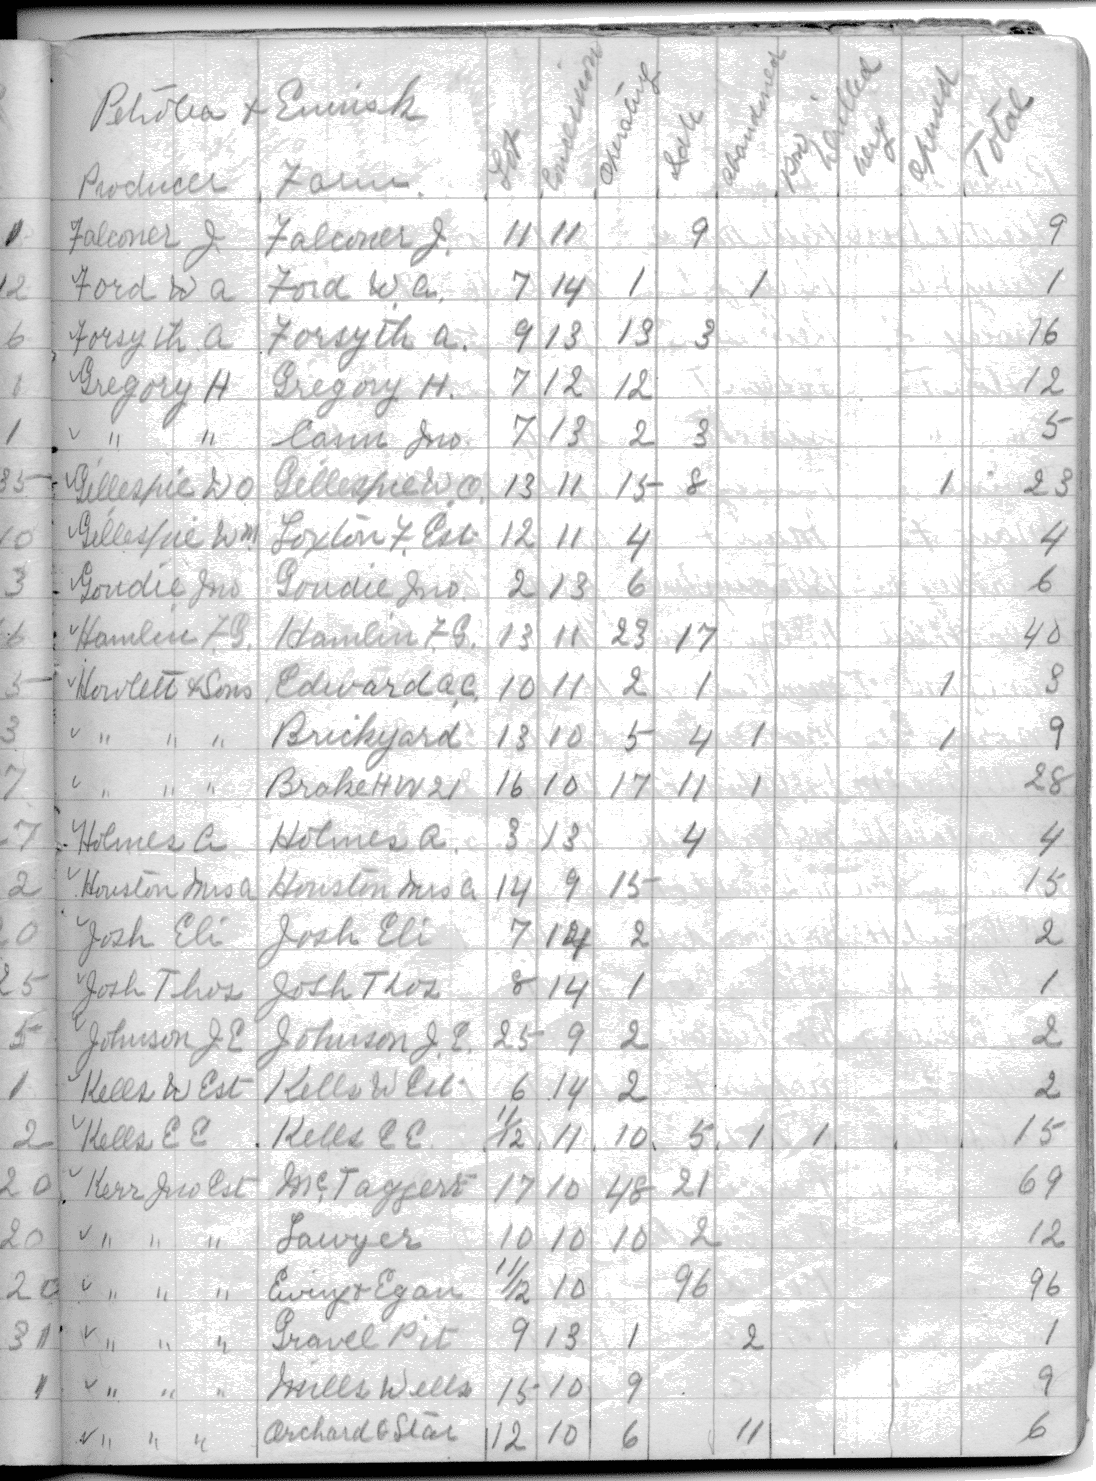 Petrolea & Ennisk
Producer Farm. Lot Concession Operating Idle Abandoned Opened Total
1 Falconer J. Falconer J. 11 11 9 9
12 Ford W a Ford W. a. 7 14 1 1 1
6 Forsyth a Forsyth a. 9 13 13 3 16
1 Gregory H Gregory H. 7 12 12 12
1 " " Cann Jno. 7 13 2 3 5
35 Gillespie W O Gillespie W. O. 13 11 15 8 1 23
10 Gillespie Wm Loxton F. Est 12 11 4 4
3 Goudie Jno Goudie Jno. 2 13 6 6
6 Hamlin F. G. Hamlin F. G. 13 11 23 17 40
5 Howlett & Sons Edward a. C. 10 11 2 1 1 3
3 " " " Brickyard 13 10 5 4 1 1 9
7 " " " Brake H W 21 16 10 17 11 1 28
7 Holmes a Holmes a. 3 13 4 4
2 Houston Mrs a Houston Mrs a 14 9 15 15
0 Josh Eli Josh Eli 7 14 2 2
25 Josh Thos Josh Thos 8 14 1 1
5 Johnson J. E Johnson J. E. 25 9 2 2
1 Kells W Est Kells W Est 6 14 2 2
2 Kells E E Kells E E 11/12 11 10 5 1 1 15
20 Kerr Jno Est McTaggert 17 10 48 21 69
20 " " " Sawyer 10 10 10 2 12
20 " " " Ewing & Egan 11/12 10 96 96
31 " " " Gravel Pit 9 13 1 2 1
1 " " " Mills Wells 15 10 9 9
" " " Orchard & Star 12 10 6 11 6